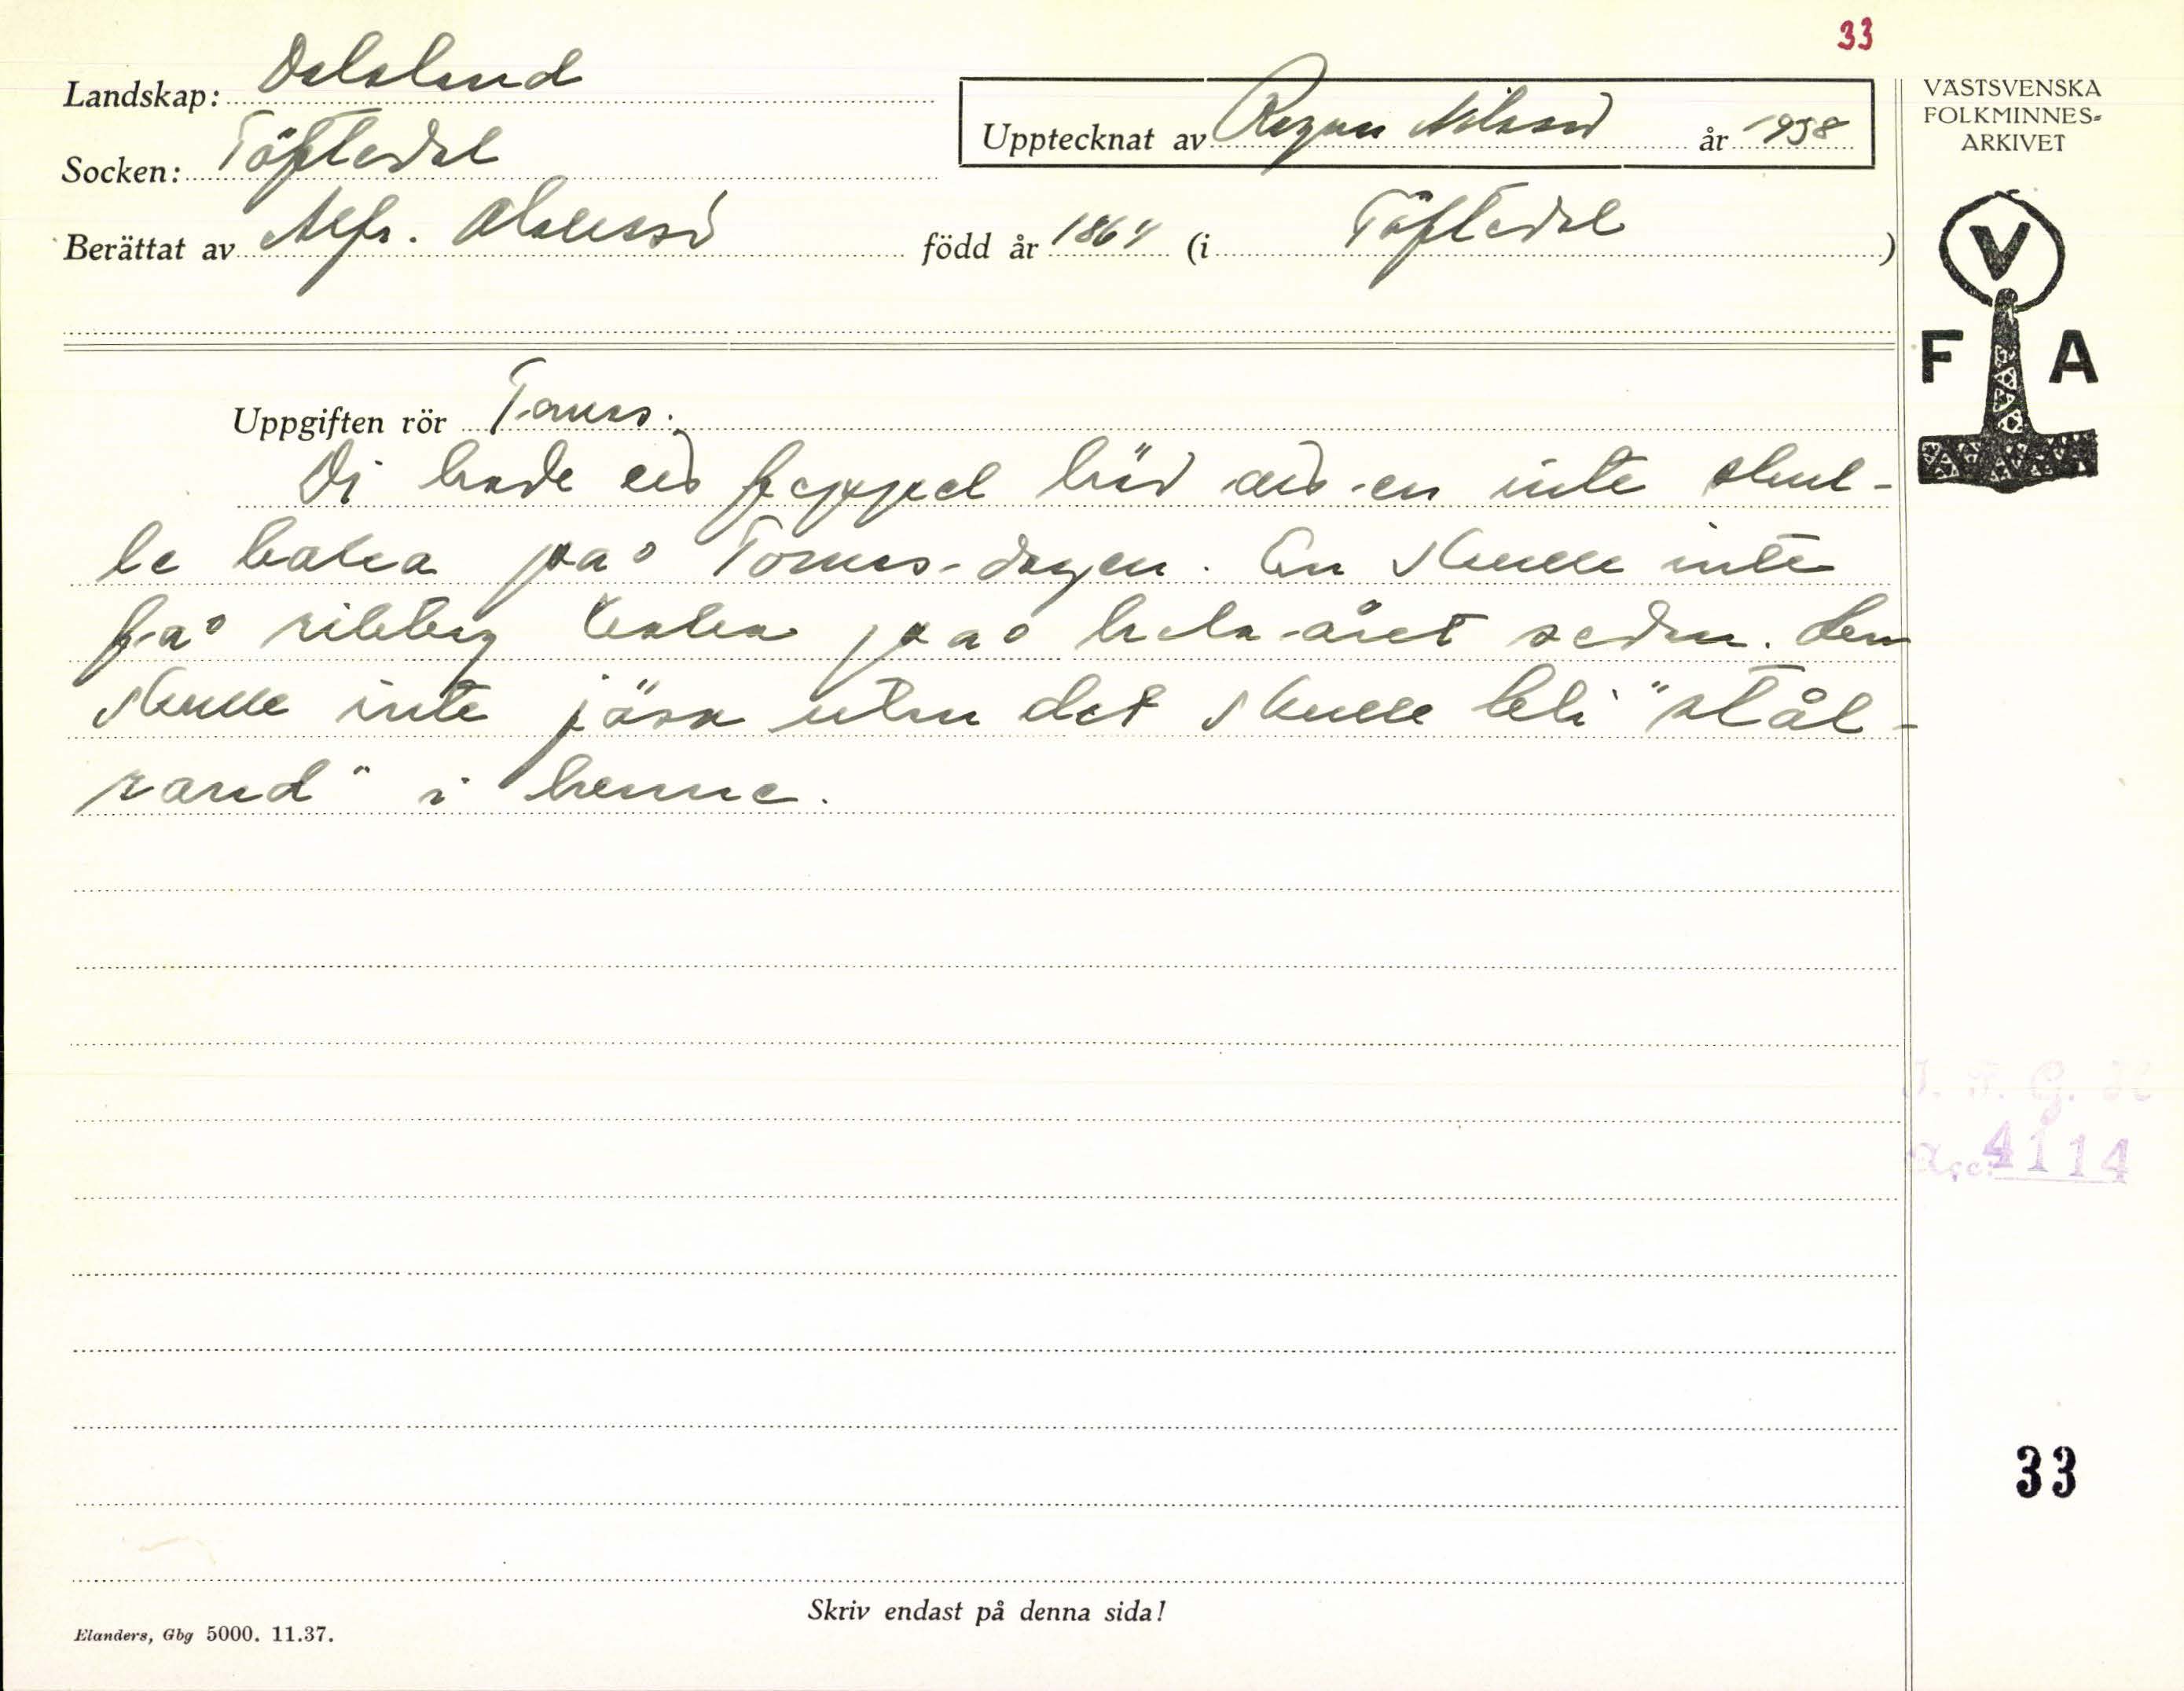 33
Landskap: Dalsland
Socken: Töftedal
Upptecknat av Ragnar Nilsson år 1938
Berättat av Alfr. Olausson född år 1864 (i Töftedal)
VÄSTSVENSKA
FOLKMINNES=
ARKIVET
V
F A
Uppgiften rör Tomas.
Di hade en för att en inte skul-
le baka på Tomas-dagen. En skulle inte
få riktig kaka på hela året sedan. Den
skulle inte jäsa utan det skulle bli "stål-
rand" i henne.
I. F. G. H
Acc. 4114
33
Skriv endast på denna sida!
Elanders, Gbg 5000. 11.37.